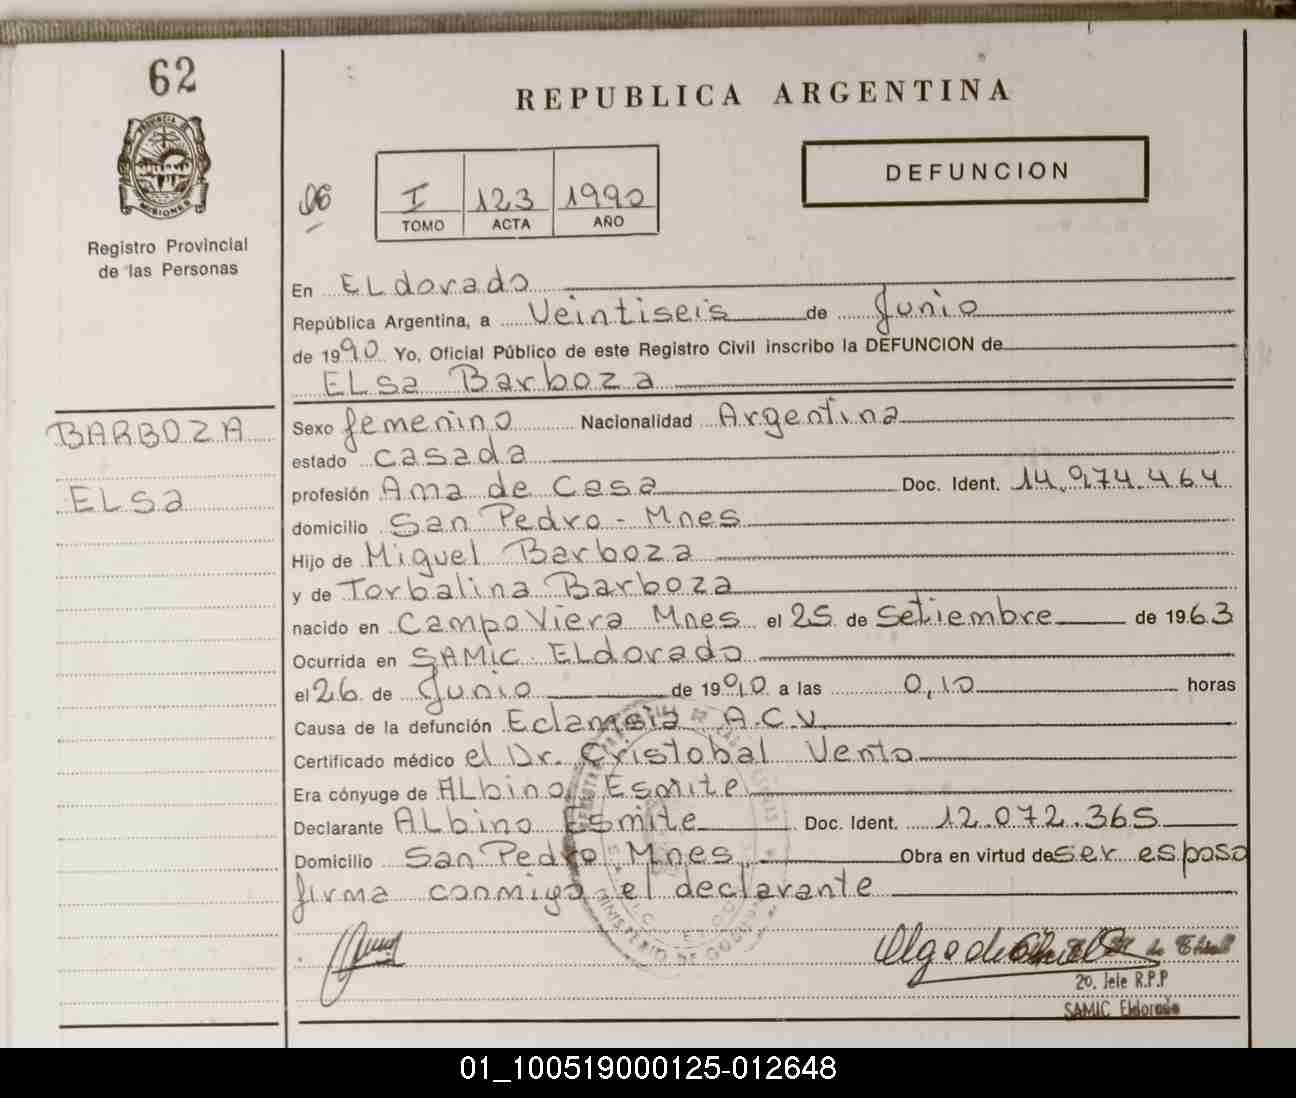 62
REPUBLICA ARGENTINA
PROVINCIA DE
MISIONES
Registro Provincial
de las Personas
I 123 1990
TOMO ACTA AÑO
DEFUNCION
En ELdorado
República Argentina, a Veintiseis de Junio
de 1990 Yo, Oficial Público de este Registro Civil inscribo la DEFUNCION de
ELsa Barboza
BARBOZA
ELSa
Sexo femenino Nacionalidad Argentina
estado casada
profesión Ama de Casa Doc. Ident. 14.974.464
domicilio San Pedro - Mnes
Hijo de Miguel Barboza
y de Torbalina Barboza
nacido en Campo Viera Mnes el 25 de Setiembre de 1963
Ocurrida en SAMIC ELdorado
el 26 de Junio de 1990 a las 0,10 horas
Causa de la defunción Eclamsia A.C.V.
Certificado médico el Dr. Cristobal Vento
Era cónyuge de ALbino Esmite
Declarante ALbino Esmite Doc. Ident. 12.072.365
Domicilio San Pedro Mnes Obra en virtud de ser esposo
firma conmigo el declarante
MINISTERIO DE
Olga de
2o. Jefe R.P.P
SAMIC Eldorado
01_100519000125-012648